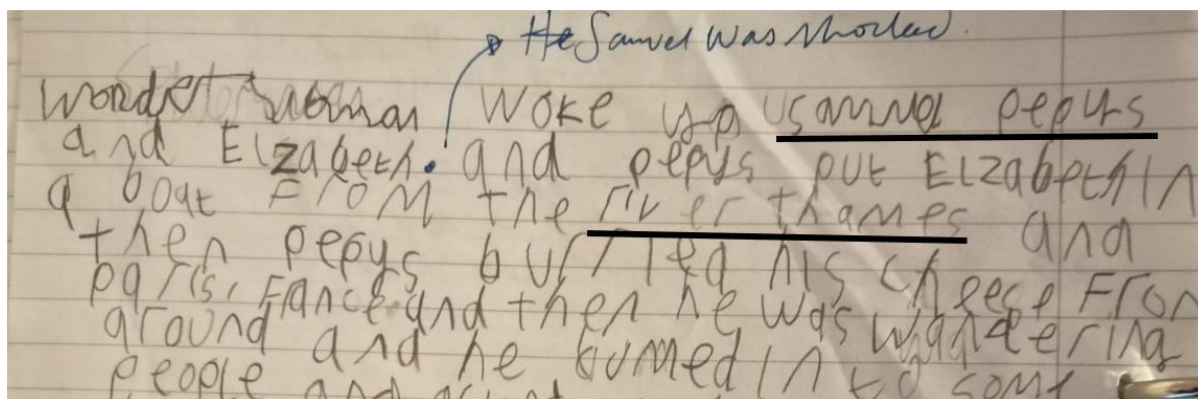 He Samuel was shocked.
wonder woman woke up samuel pepys
and Elzabeth. and pepys put Elzabeth in
a boat From the river thames and
then pepys burried his cheese From
paris, France and then he was wandering
around and he bumed in to some
people and